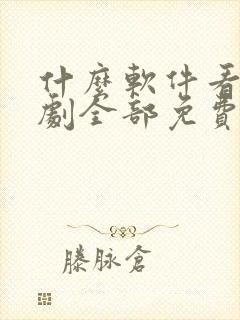 什麼軟件看
劇全部免費
滕脉倉